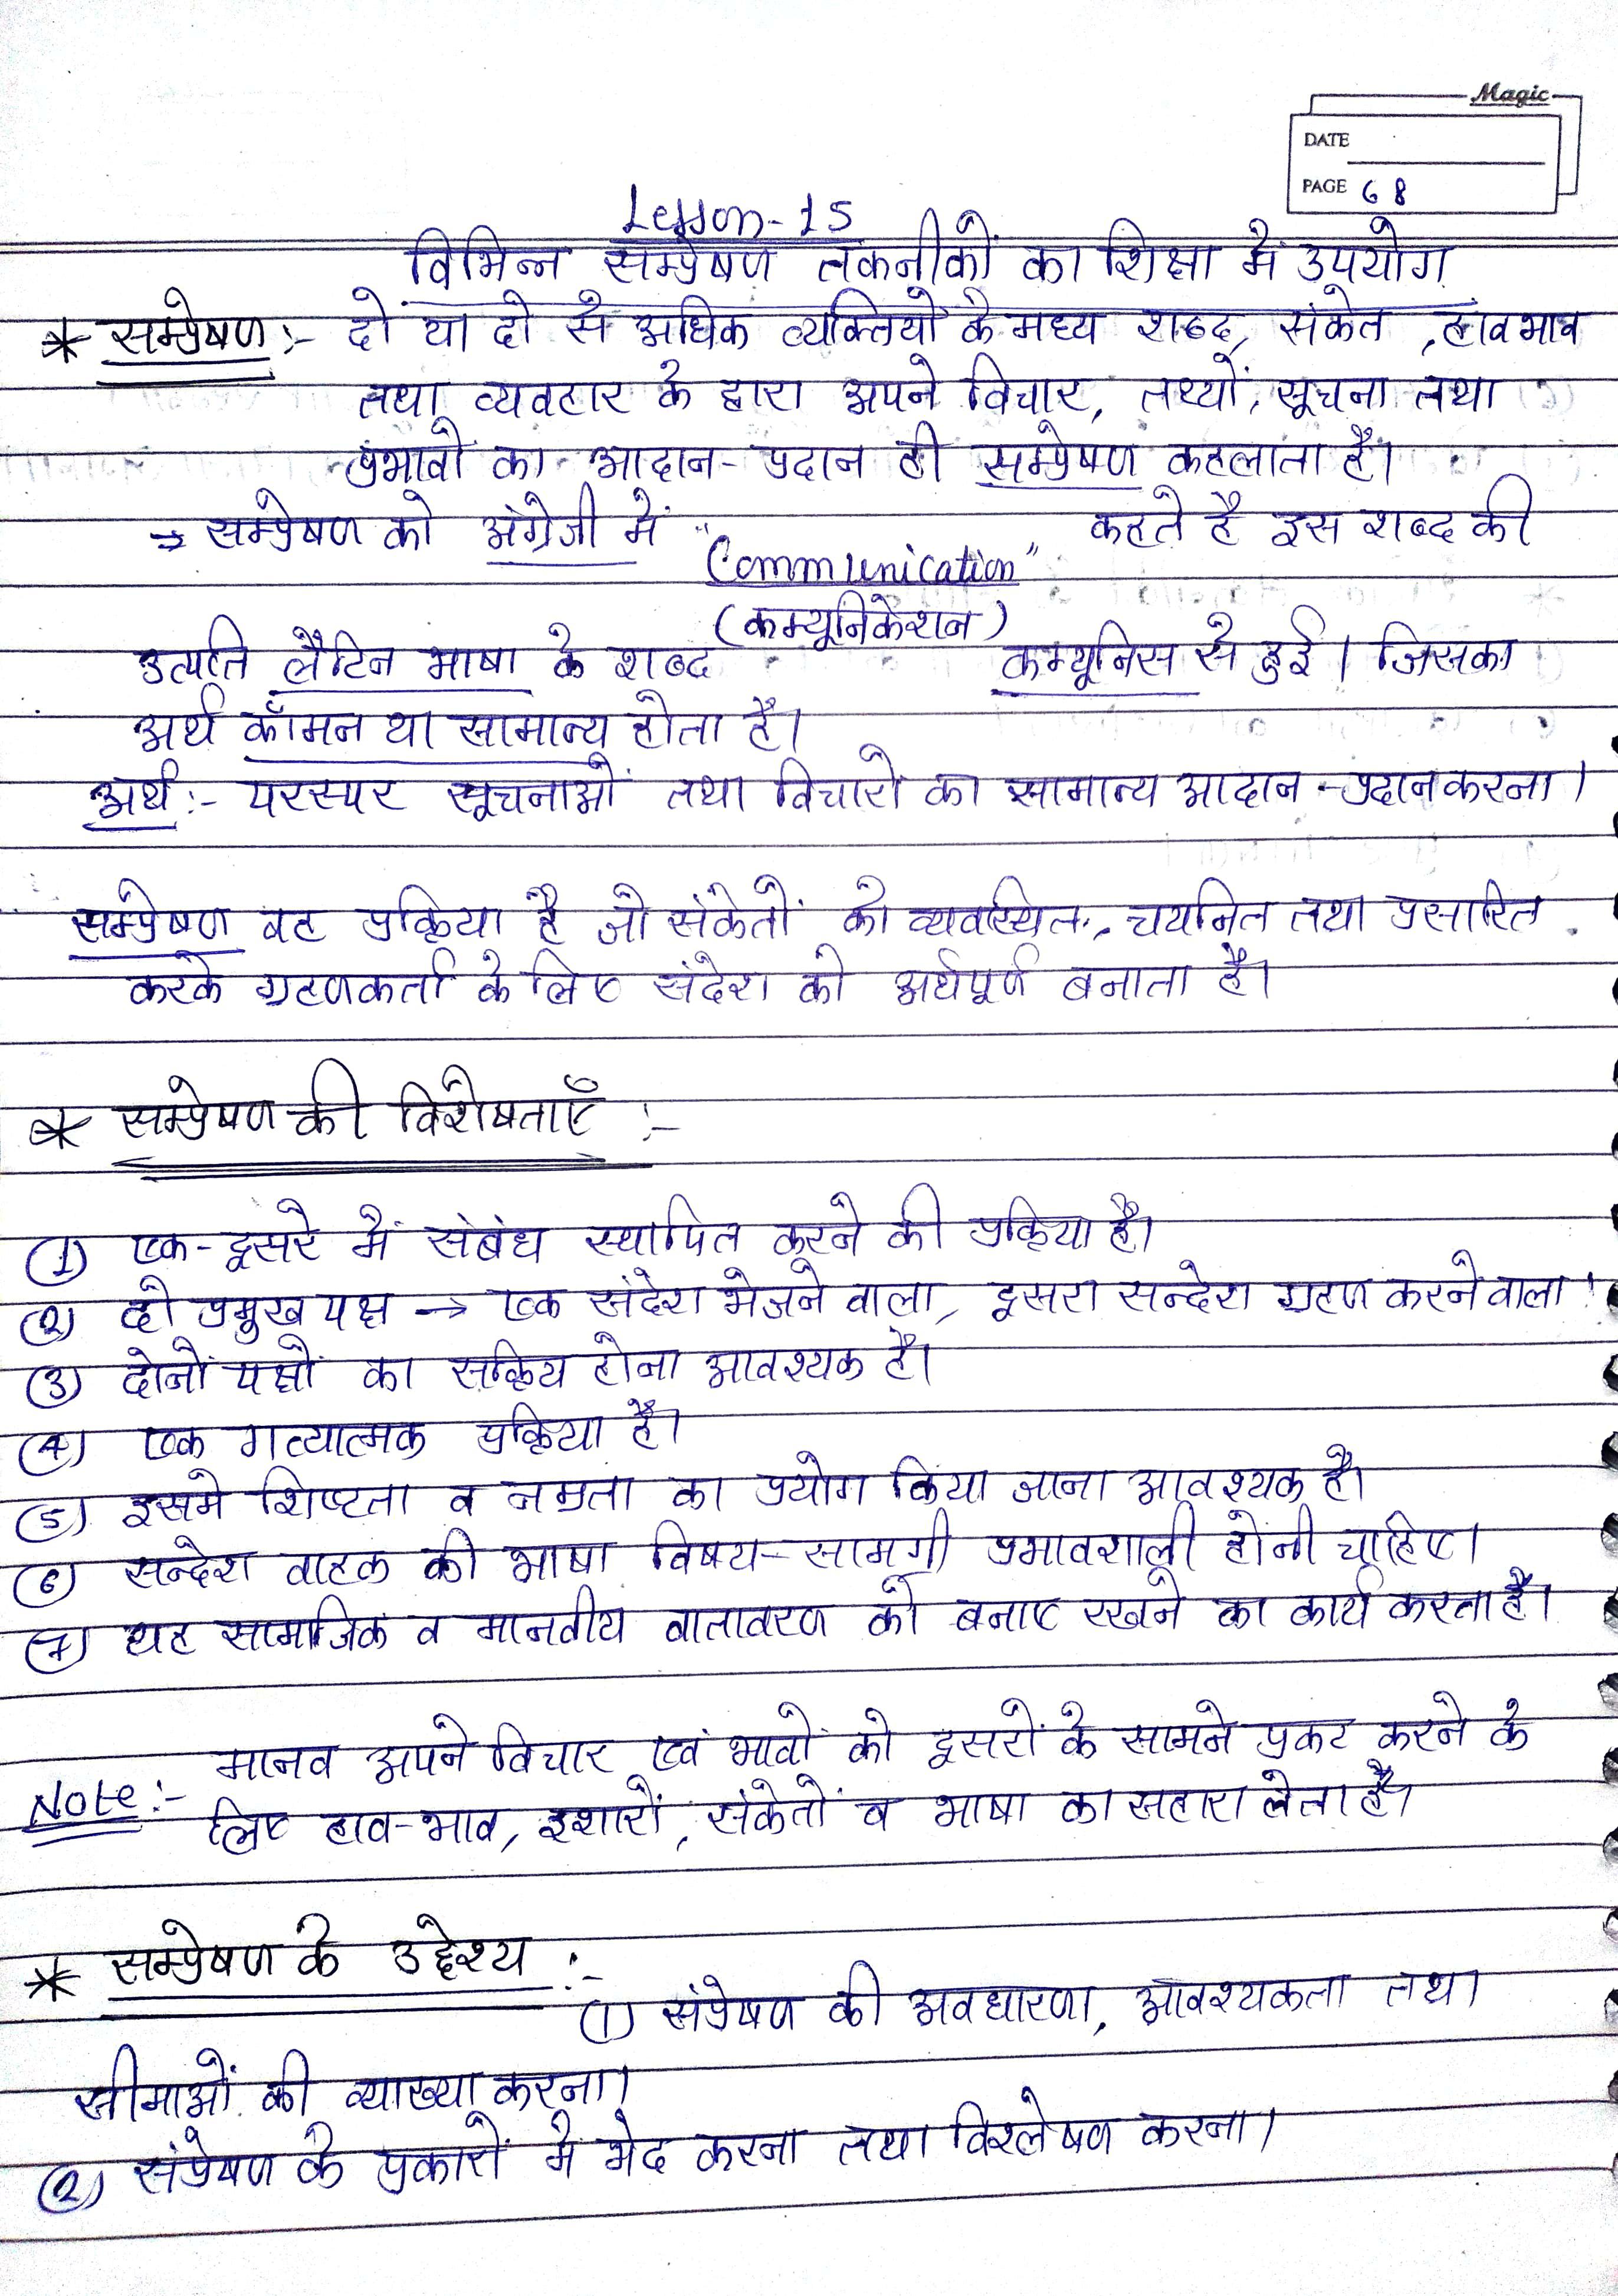 Magic
DATE
PAGE 68
Lesson-15
विभिन्न सम्प्रेषण तकनीकों का शिक्षा में उपयोग
* सम्प्रेषण :- दो या दो से अधिक व्यक्तियों के मध्य शब्द, संकेत, हाव भाव
तथा व्यवहार के द्वारा अपने विचार, तथ्यों, सूचना तथा
प्रभावों का आदान-प्रदान ही सम्प्रेषण कहलाता है।
⇒ सम्प्रेषण को अंग्रेजी में "Communication" कहते है इस शब्द की
(कम्यूनिकेशन)
उत्पति लैटिन भाषा के शब्द कम्यूनिस से हुई। जिसका
अर्थ कॉमन या सामान्य होता है।
अर्थ :- परस्पर सूचनाओं तथा विचारो का सामान्य आदान-प्रदान करना।
सम्प्रेषण वह प्रक्रिया है जो संकेतों को व्यवस्थित, चयनित तथा प्रसारित
करके ग्रहणकर्ता के लिए संदेश को अर्थपूर्ण बनाता है।
* सम्प्रेषण की विशेषताएँ :-
(1) एक-दूसरे में संबंध स्थापित करने की प्रक्रिया है।
(2) दो प्रमुख पक्ष → एक संदेश भेजने वाला, दूसरा सन्देश ग्रहण करने वाला।
(3) दोनों पक्षों का सक्रिय होना आवश्यक है।
(4) एक गत्यात्मक प्रक्रिया है।
(5) इसमे शिष्टता व नम्रता का प्रयोग किया जाना आवश्यक है।
(6) सन्देश वाहक की भाषा विषय-सामग्री प्रभावशाली होनी चाहिए।
(7) यह सामाजिक व मानवीय वातावरण को बनाए रखने का कार्य करता है।
मानव अपने विचार एवं भावों को दूसरों के सामने प्रकट करने के
Note :- लिए हाव-भाव, इशारों, संकेतों व भाषा का सहारा लेता है।
* सम्प्रेषण के उद्देश्य :-
(1) संप्रेषण की अवधारणा, आवश्यकता तथा
सीमाओं की व्याख्या करना।
(2) संप्रेषण के प्रकारों मे भेद करना तथा विश्लेषण करना।